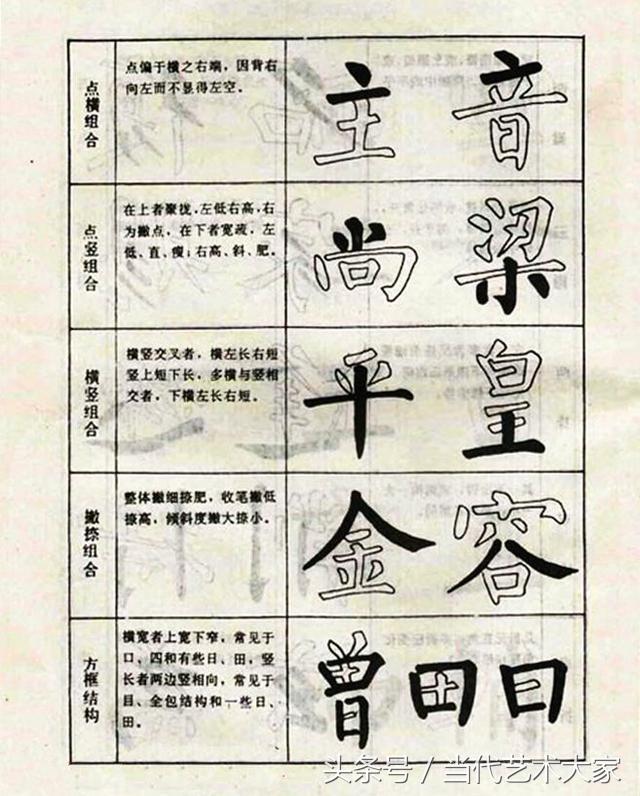 点横组合
点偏于横之右端，因背右
向左而不显得左空。
主 音
点竖组合
在上者聚拢，左低右高，右
为撇点，在下者宽疏，左
低、直、瘦；右高、斜、肥。
尚 梁
横竖组合
横竖交叉者，横左长右短
竖上短下长，多横与竖相
交者，下横左长右短。
平 皇
撇捺组合
整体撇细捺肥，收笔撇低
捺高，倾斜度撇大捺小。
金 容
方框结构
横宽者上宽下窄，常见于
口、四和有些日、田，竖
长者两边竖相向，常见于
目、全包结构和一些日、
田。
曾 田 曰
头条号／当代艺术大家